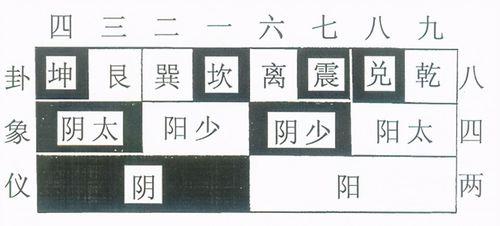 四 三 二 一 六 七 八 九
卦 坤 艮 巽 坎 离 震 兑 乾 八
象 阴太 阳少 阴少 阳太 四
仪 阴 阳 两